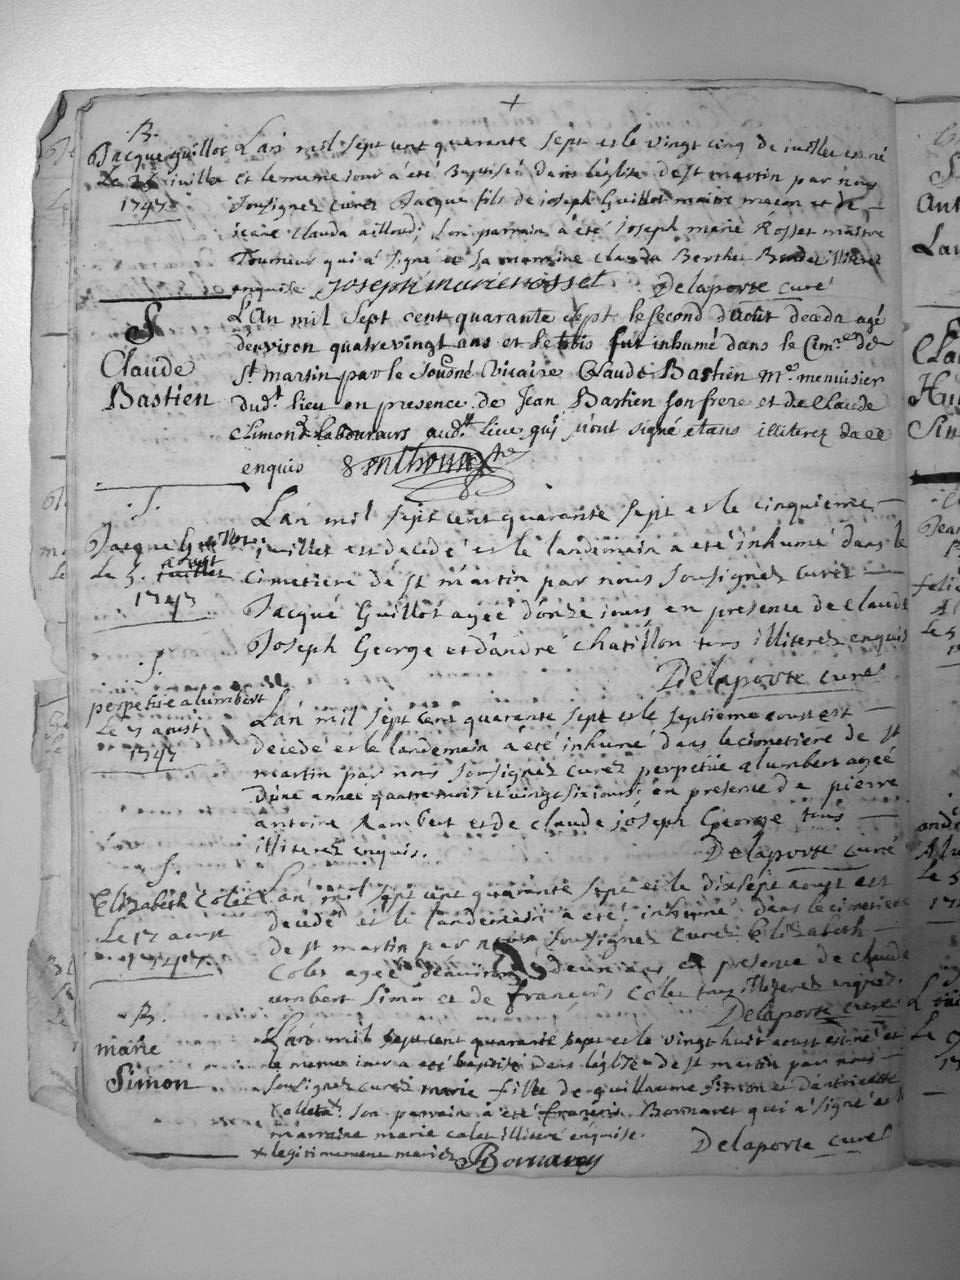 +
B.
Jacque Guillot
Le 25 iuillet
1747
Lan mil sept cent quarante sept et le vingt cinq de iuillet est né
et le meme iour a été Baptisé dans l'église de st martin par nous
sousignez curez Jacque fils de ioseph Guillot maitre macon et de
ieane Clauda ailloud; son parrain à été ioseph marie Rosset maitre
Tourneur qui a signé et sa marraine Clauda Berthet illiteré
enquise Joseph marie rosset Delaporte curé
S
Claude
Bastien
L'An mil sept cent quarante sept le second d'aoüt deceda agé
d'environ quatrevingt ans et le fut inhumé dans le Cim.re de
St martin par le sousné vicaire Claude Bastien m.e menuisier
dud.t lieu en presence de Jean Bastien son frere et de Claude
Simond laboureurs aud.t lieu qui n'ont signé etans illiterez de ce
enquis
S.
Jacque Guillot
Le 5. aoust iuillet
1747
Lan mil sept cent quarante sept et le cinquieme
iuillet est decedé et le landemain a eté inhumé dans le
cimetiere de st martin par nous sousignez curez
Jacque Guillot agée d'onze iours, en presence de claude
Joseph George et d'andré chatillon tous illiterez enquis
Delaporte curé
S.
perpetüe alumbert
Le 7 aoust
1747
Lan mil sept cent quarante sept et le septieme aoust est
decedé et le landemain à été inhumé dans le cimetiere de st
martin par nous sousignez curez perpetüe alumbert agée
d'une année quatre mois et vingt six iours, en presence de pierre
antoine Rambert et de claude ióseph George tous
illiterez enquis.
Delaporte curé
S.
Elizabeth Colet
Le 17 aoust
1747
Lan mil sept cent quarante sept et le dixsept aoust est
decedé et le landemain à eté inhumé dans le cimetiere
de st martin par nous sousignez curez Elizabeth
Colet agée d'environ deux ans, en presence de claude
umbert Simon et de françois Colet tous illiterez enquis.
Delaporte curé
B.
marie
Simon
Lan mil sept cent quarante sept et le vingt huit aoust est né et
le meme iour a eté baptisé dans l'église de st martin par nous
sousignez curez marie fille de guillaume Simon et
x son parrain à été françois Bonnavet qui a signé et
marraine marie calet illiteré enquise.
x legitimement mariez Delaporte curé